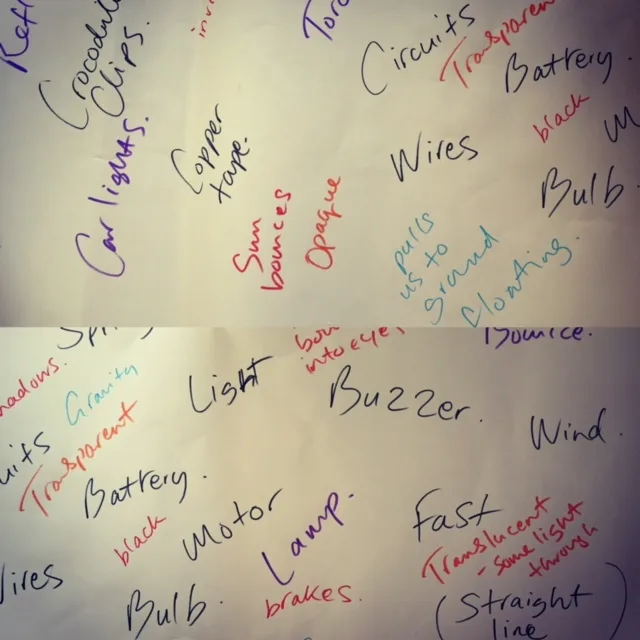 Crocodile
Clips.
Circuits
Transparen
Battery.
black
Car lights.
Copper
tape.
Wires
Bulb.
Sun
bounces
Opaque
pulls
us to
ground
floating.
hadows.
Gravity
into eye
Bounce.
Light
Buzzer.
Wind.
uits
Transparent
Battery.
black
Motor
Lamp.
Fast
Translucent
- some light
through
Wires
Bulb.
brakes.
(Straight
line